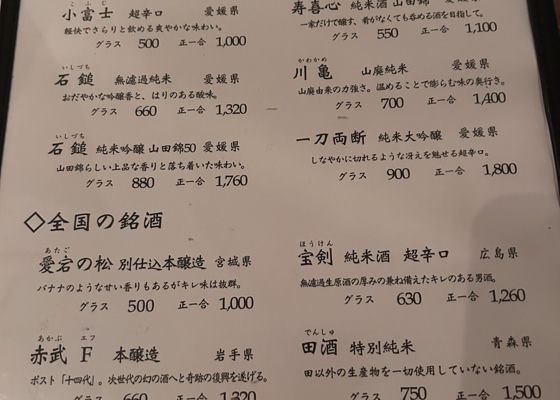 こふじ
小富士 超辛口 愛媛県
軽快でさらりと飲める爽やかな味わい。
グラス 500 正一合 1,000
いしづち
石鎚 無濾過純米 愛媛県
おだやかな吟醸香と、はりのある酸味。
グラス 660 正一合 1,320
いしづち
石鎚 純米吟醸 山田錦50 愛媛県
山田錦らしい上品な香りと落ち着いた味わい。
グラス 880 正一合 1,760
◇全国の銘酒
あたご
愛宕の松 別仕込本醸造 宮城県
バナナのようなせい香りもあるがキレ味は抜群。
グラス 500 正一合 1,000
あかぶ エフ
赤武 F 本醸造 岩手県
ポスト「十四代」。次世代の幻の酒へと奇跡の復興を遂げる。
グラス 660 正一合 1,320
寿喜心 純米酒 山田錦 愛媛県
一家だけで醸す、肴がなくても呑める酒を目指して。
グラス 550 正一合 1,100
かわかめ
川亀 山廃純米 愛媛県
山廃由来の力強さ。温めることで膨らむ味の奥行き。
グラス 700 正一合 1,400
一刀両断 純米大吟醸 愛媛県
しなやかに切れるような冴えを魅せる超辛口。
グラス 900 正一合 1,800
ほうけん
宝剣 純米酒 超辛口 広島県
無濾過生原酒の厚みの兼ね備えたキレのある男酒。
グラス 630 正一合 1,260
でんしゅ
田酒 特別純米 青森県
田以外の生産物を一切使用していない銘酒。
グラス 750 正一合 1,500